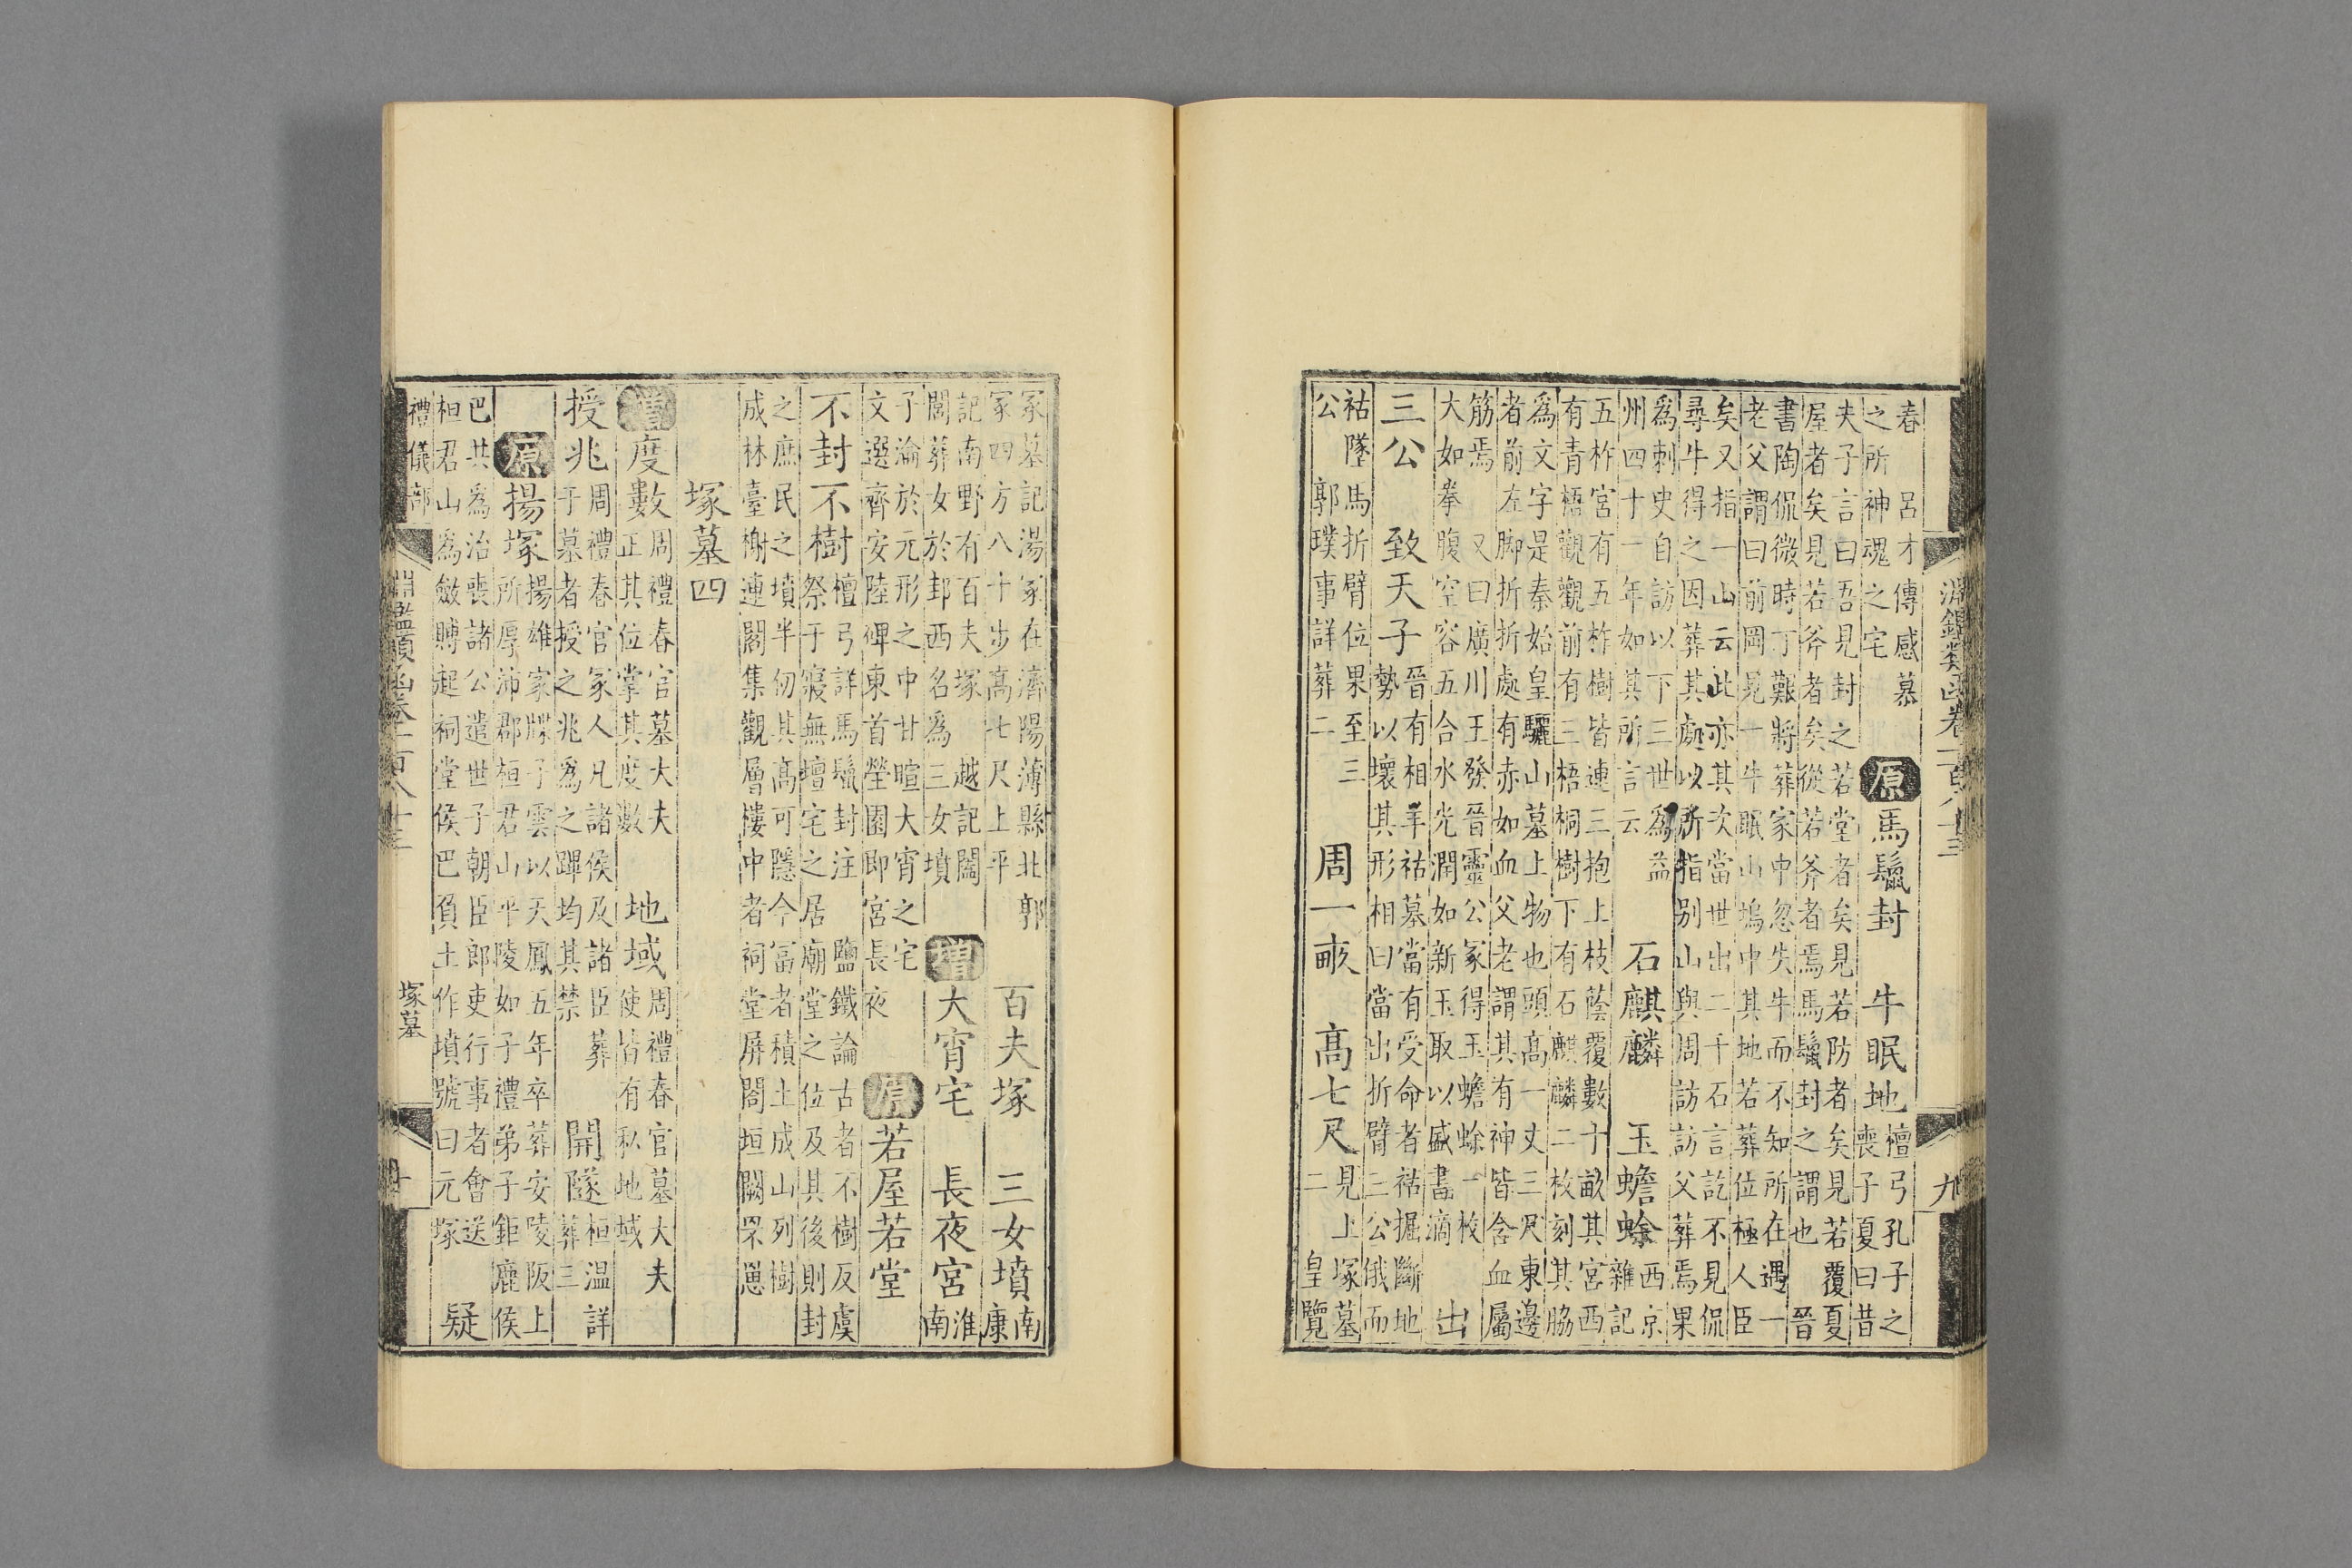 淵鑑類函卷一百八十三 九
春 呂才傳感慕
之所神魂之宅
原 馬鬣封 牛眠地
檀弓孔子之
喪子夏曰昔
夫子言曰吾見封之若堂者矣見若防者矣見若覆夏
屋者矣見若斧者矣從若斧者焉馬鬣封之謂也 晉
書陶侃微時丁艱將葬家中忽失牛而不知所在遇一
老父謂曰前岡見一牛眠山塢中其地若葬位極人臣
矣又指一山云此亦其次當世出二千石言訖不見侃
尋牛得之因葬其處以所指别山與周訪訪父葬焉果
爲刺史自訪以下三世爲益
州四十一年如其所言云
石麒麟 玉蟾蜍
西京
雜記
五柞宮有五柞樹皆連三抱上枝蔭覆數十畝其宮西
有青梧觀觀前有三梧桐樹下有石麒麟二枚刻其脇
爲文字是秦始皇驪山墓上物也頭高一丈三尺東邊
者前左脚折折處有赤如血父老謂其有神皆含血屬
筋焉 又曰廣川王發晉靈公冢得玉蟾蜍一枚
大如拳腹空容五合水光潤如新玉取以盛書滴
出
三公 致天子
晉有相羊祜墓當有受命者祜掘斷地
勢以壞其形相曰當出折臂三公俄而
祜墜馬折臂位果至三
公 郭璞事詳葬二
周一畝 高七尺
見上塚墓
二 皇覽
冢墓記湯冢在濟陽薄縣北郭
冢四方八十步高七尺上平
百夫塚 三女墳
南
康
記南野有百夫塚 越記闔
閭葬女於邽西名爲三女墳
增 大宵宅 長夜宮
淮
南
子淪於元形之中廿暄大宵之宅
文選齊安陸碑東首塋園即宮長夜
原 若屋若堂
不封不樹
檀弓詳馬鬣封注 鹽鐵論古者不樹反虞
祭于寢無壇宅之居廟堂之位及其後則封
之庶民之墳半仞其高可隱今富者積土成山列樹
成林臺榭連閣集觀層樓中者祠堂屏閤垣闕罘罳
塚墓四
增 度數
周禮春官墓大夫
正其位掌其度數
地域
周禮春官墓大夫
使皆有私地域
授兆
周禮春官冢人凡諸侯及諸臣葬
于墓者授之兆爲之蹕均其禁
開隧
桓温詳
葬三
原 揚塚
揚雄家牒子雲以天鳳五年卒葬安陵阪上
所厚沛郡桓君山平陵如子禮弟子鉅鹿侯
巴共爲治喪諸公遣世子朝臣郎吏行事者會送
桓君山爲斂賻起祠堂侯巴負土作墳號曰元塚
疑
禮儀部
淵鑑類函卷一百八十三 塚墓 十